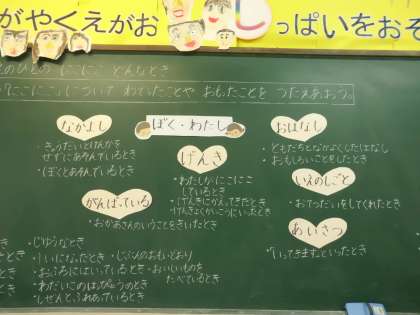 がやくえがお
っぱいをおそ
のひとの にこにこ どんなとき
「にこにこ」について わかったことや おもったことを つたえあおう。
なかよし
・きょうだいとけんかを
せずにあそんでいるとき
・ぼくとあそんでいるとき
ぼく・わたし
げんき
・わたしがにこにこ
しているとき
・げんきにかえってきたとき
・げんきよくがっこうにいったとき
おはなし
・ともだちとなかよくしたはなし
・おもしろいことをしたとき
いえのしごと
・おてつだいをしてくれたとき
あいさつ
・「いってきます。」といったとき
がんばっている
・おかあさんのいうことをきいたとき
とき
とき
とき
・じゆうなとき
・いいになったとき
・じぶんのおもいどおり
・おふろにはいっているとき
・おいしいものを
たべているとき
・わだいこのはっぴょうのとき
・しぜんと、ふれあっているとき